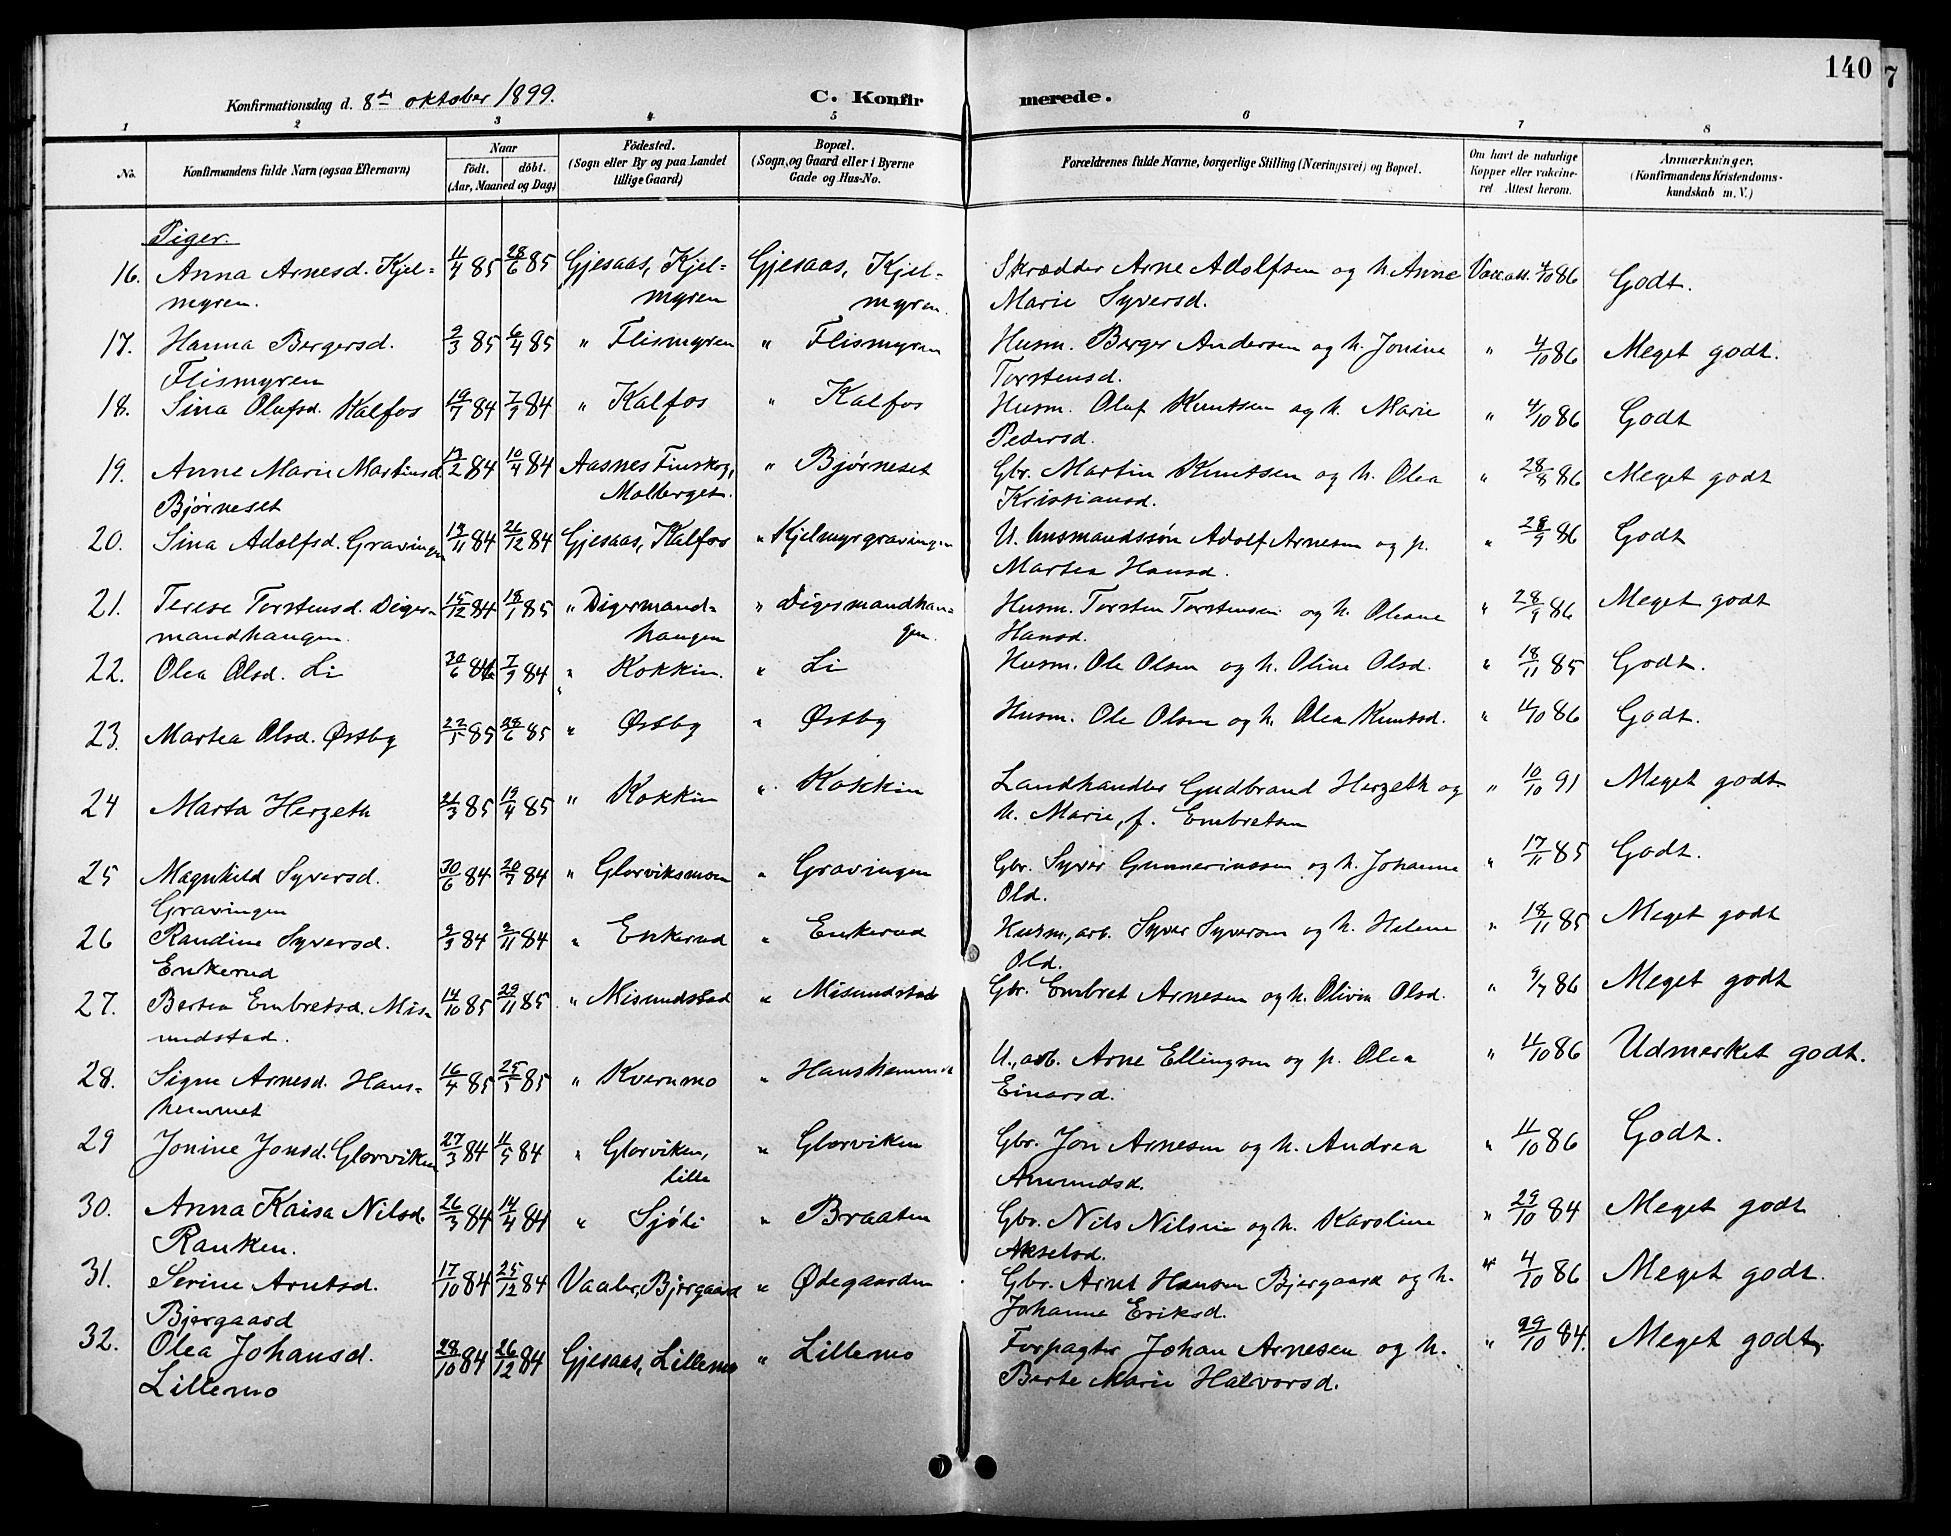 140
7
Konfirmationsdag d. 8de oktober 1899. C. Konfirmerede.
1 2 3 4 5 6 7 8
No. Konfirmandens fulde Navn (ogsaa Efternavn) Naar født. døbt. (Aar, Maaned og Dag) Fødested. (Sogn eller By og paa Landet tillige Gaard) Bopæl. (Sogn, og Gaard eller i Byerne Gade og Hus-No. Forældrenes fulde Navne, borgerlige Stilling (Næringsvei) og Bopæl. Om havt de naturlige Kopper eller vakcineret Attest herom. Anmærkninger. (Konfirmandens Kristendomskundskab m. V.)
Piger.
16. Anna Arnesd. Kjel- 11/4 85 28/6 85 Gjesaas, Kjel- Gjesaas, Kjel- Skrædder Arne Adolfsen og h. Anne Vacc.att. 4/10 86 Godt.
myren. myren myren. Marie Syversd.
17. Hanna Bergersd. 2/3 85 6/4 85 " Flismyren " Flismyren Husm. Berger Andersen og h. Jonine " 4/10 86 Meget godt.
Flismyren Torstensd.
18. Sina Olufsd. Kalfos 19/7 84 7/9 84 " Kalfos " Kalfos Husm. Oluf Knutsen og h. Marie " 4/10 86 Godt
Pedersd.
19. Anne Marie Martinsd. 17/2 84 10/4 84 Aasnes Finskog, " Bjørneset Gbr. Martin Knutsen og h. Olea " 28/8 86 Meget godt
Bjørneset Molberget. Kristiansd.
20. Sina Adolfsd. Gravingen 13/11 84 26/12 84 Gjesaas, Kalfos " Kjelmyrgravingen U. husmandssøn Adolf Arnesen og p. " 28/9 86 Godt
Martea Hansd.
21. Terese Torstensd. Diger- 15/12 84 18/1 85 " Digermand- " Digermandhau- Husm. Torsten Torstensen og h. Oleane " 28/9 86 Meget godt
mandhaugen. haugen gen. Hansd.
22. Olea Olsd. Li 30/6 84 7/9 84 " Kokkin. " Li Husm. Ole Olsen og h. Oline Olsd. " 18/11 85 Godt.
23. Martea Olsd. Østby 22/5 85 28/6 85 " Østby " Østby Husm. Ole Olsen og h. Olea Knutsd. " 11/10 86 Godt.
24 Marta Herzeth 21/3 85 19/4 85 " Kokkin " Kokkin Landhandler Gudbrand Herzeth og " 10/10 91 Meget godt
h. Marie, f. Embretsen
25 Magnhild Syversd. 30/6 84 20/7 84 " Glorviksmoen " Gravingen Gbr. Syver Gunneriussen og h. Johanne " 17/11 85 Godt.
Gravingen Old.
26 Randine Syversd. 2/9 84 2/11 84 " Enkerud " Enkerud Husm., arb. Syver Syversen og h. Helene " 18/11 85 Meget godt
Enkerud Old.
27. Bertea Embretsd. Mis- 14/10 85 29/11 85 " Misundstad " Misundstad Gbr. Embret Arnesen og h. Olivia Olsd. " 9/7 86 Meget godt
undstad.
28. Signe Arnesd. Hans- 16/4 85 25/5 85 " Kvernmo " Hanshemmet U., arb. Arne Ellingsen og p. Olea " 11/10 86 Udmerket godt.
hemmet Einarsd.
29 Jonine Jonsd. Glorviken 27/3 84 11/5 84 " Glorviken, " Glorviken Gbr. Jon Arnesen og h. Andrea " 11/10 86 Godt.
lille Amundsd.
30. Anna Kaisa Nilsd. 26/3 84 14/4 84 " Sjøli " Braaten Gbr. Nils Nilsen og h. Karoline " 29/10 84 Meget godt
Ranken. Akselsd.
31. Serine Arntsd. 17/10 84 25/12 84 Vaaler, Bjørgaard " Ødegaarden Gbr. Arnt Hansen Bjergaard og h. " 4/10 86 Meget godt.
Bjergaard Johanne Eriksd.
32. Olea Johansd. 28/10 84 26/12 84 Gjesaas, Lillemo " Lillemo Forpagter Johan Arnesen og h. " 29/10 84. Meget godt
Lillemo Berte Marie Halvorsd.